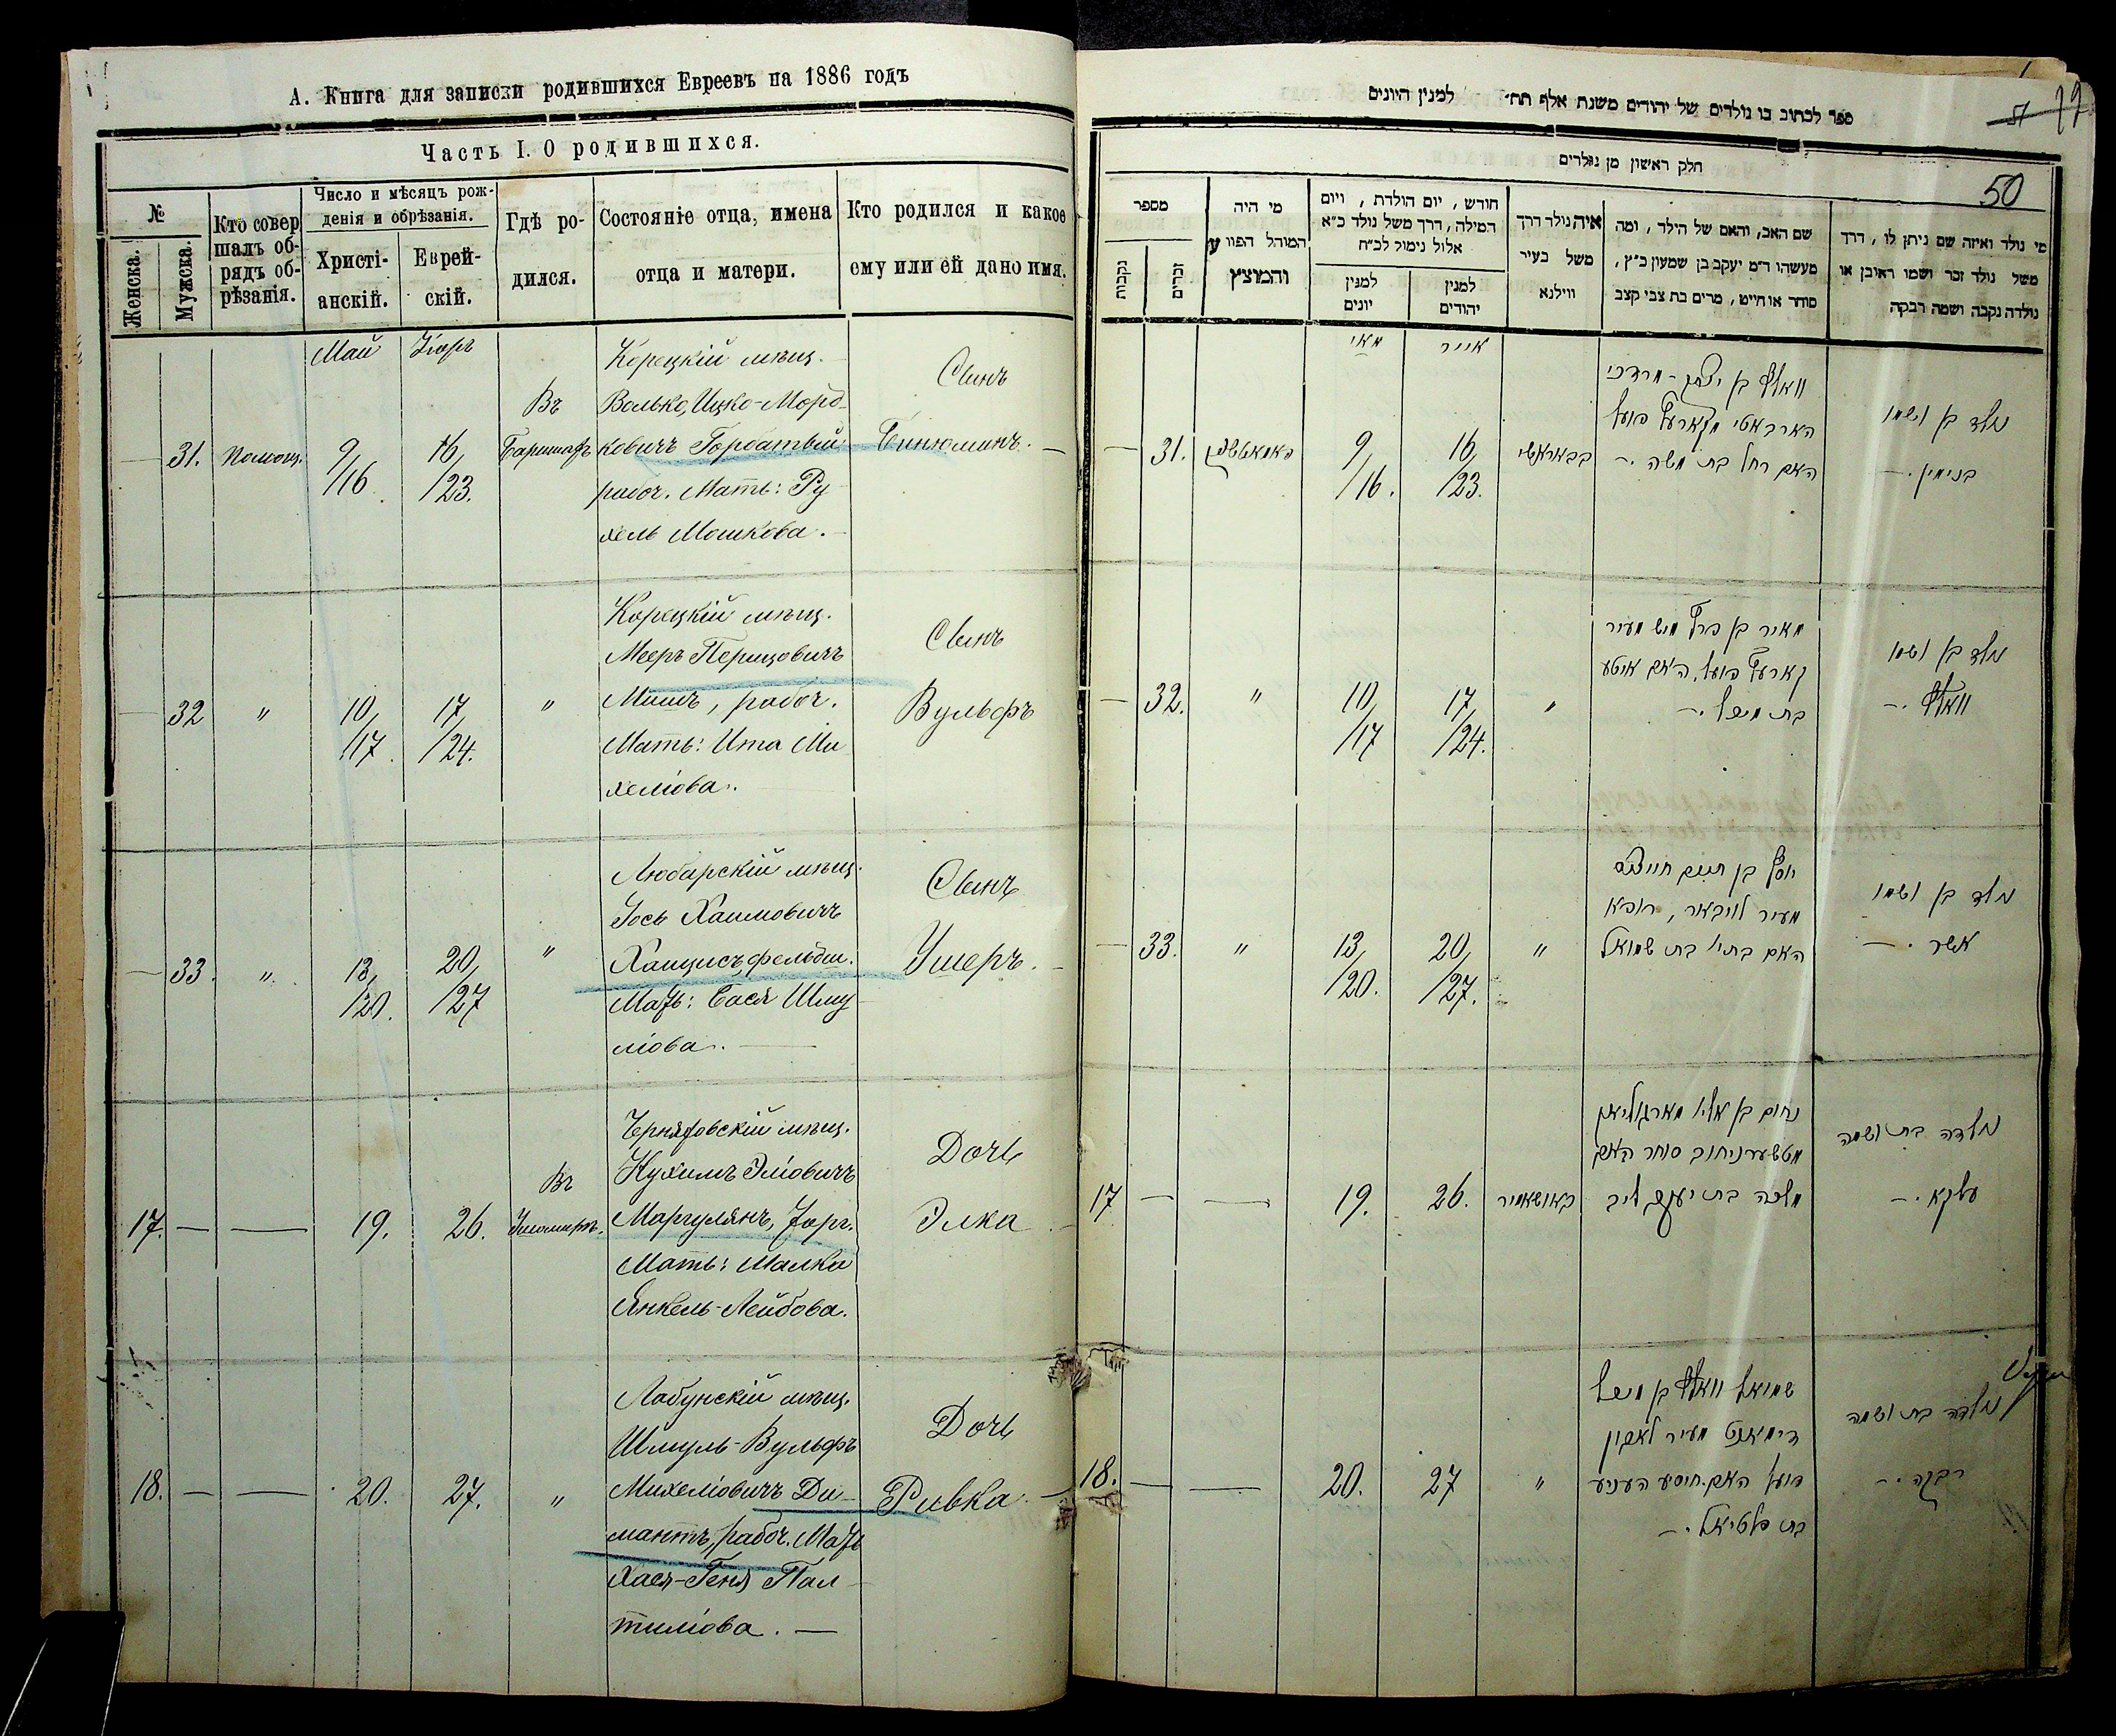 А. Книга для записки родившихся Евреевъ на 1886 годъ
Часть I. О родившихся.
№
Женска.
Мужска.
Кто совер
шалъ об-
рядъ об-
рѣзанія.
Число и мѣсяцъ рож-
денія и обрѣзанія.
Христі-
анскій.
Еврей-
скій.
Гдѣ ро-
дился.
Состояніе отца, имена
отца и матери.
Кто родился и какое
ему или ей дано имя.
Май
Іюръ
— 31.
9/16
16/23.
Въ
Корецкій мѣщ.
Волько, Ицко-Морд-
ковичъ Горбатый
рабоч. Мать: Ру
хель Мошкова.
Сынъ
Биньюминъ. —
— 32 "
10/17.
17/24.
"
Корецкій мѣщ.
Мееръ Перицовичъ
Мишъ, рабоч.
Мать: Ита Ми
хеліова.
Сынъ
Вульфъ
— 33. "
13/20.
20/27
"
Любарскій мѣщ.
Іось Хаимовичъ
Хаицисъ, фельдш.
Мать: Бася Шму
ліова. —
Сынъ
Ушеръ. —
17. — —
19.
26.
Въ
Черняховскій мѣщ.
Нухимъ Эліовичъ
Маргулянъ, торг.
Мать: Малка
Янкель-Лейбова.
Дочь
Элка. —
18. — —
20.
27.
"
Лабунскій мѣщ.
Шмуль-Вульфъ
Михеліовичъ Ди-
мантъ, рабоч. Мать
Хася-Геня Пал
тиліова. —
Дочь
Ривка. —
ספר לכתוב בו נולדים של יהודים משנת אלף תת״ למנין היונים
50
חלק ראשון מן נולדים
מספר
נקבות
זכרים
מי היה
המוהל הפורע
והמוצץ
חודש, יום הולדת, ויום
המילה, דרך משל נולד כ״א
אלול נימול לכ״ח
למנין
יונים
למנין
יהודים
איה נולד דרך
משל בעיר
ווילנא
שם האב, והאם של הילד, ומה
מעשהו ד״מ יעקב בן שמעון כ״ץ,
סוחר או חייט, מרים בת צבי קצב
מי נולד ואיזה שם ניתן לו, דרך
משל נולד זכר ושמו ראובן או
נולדה נקבה ושמה רבקה
מאי
אייר
— 31.
9/16.
16/23.
וואלף בן יצחק-מרדכי
הארבאטי מקארעץ פועל
האם רחל בת משה. —
נולד בן ושמו
בנימין. —
— 32. "
10/17
17/24.
"
מאיר בן פרץ מיש מעיר
קארעץ פועל, האם איטע
בת מיכל. —
נולד בן ושמו
וואלף. —
— 33. "
13/20.
20/27.
"
יוסף בן חיים
מעיר לויבאר, רופא
האם בתי׳ בת שמואל
נולד בן ושמו
אשר. —
17 — —
19.
26.
נחום בן אלי׳ מארגוליאן
סוחר האם
מלכה בת יעקב ליב
נולדה בת ושמה
עלקא. —
18. — —
20.
27
"
שמואל וואלף בן מיכל
דימאנט מעיר לאבון
פועל האם חיסיע העניע
בת פלטיאל. —
נולדה בת ושמה
רבקה. —